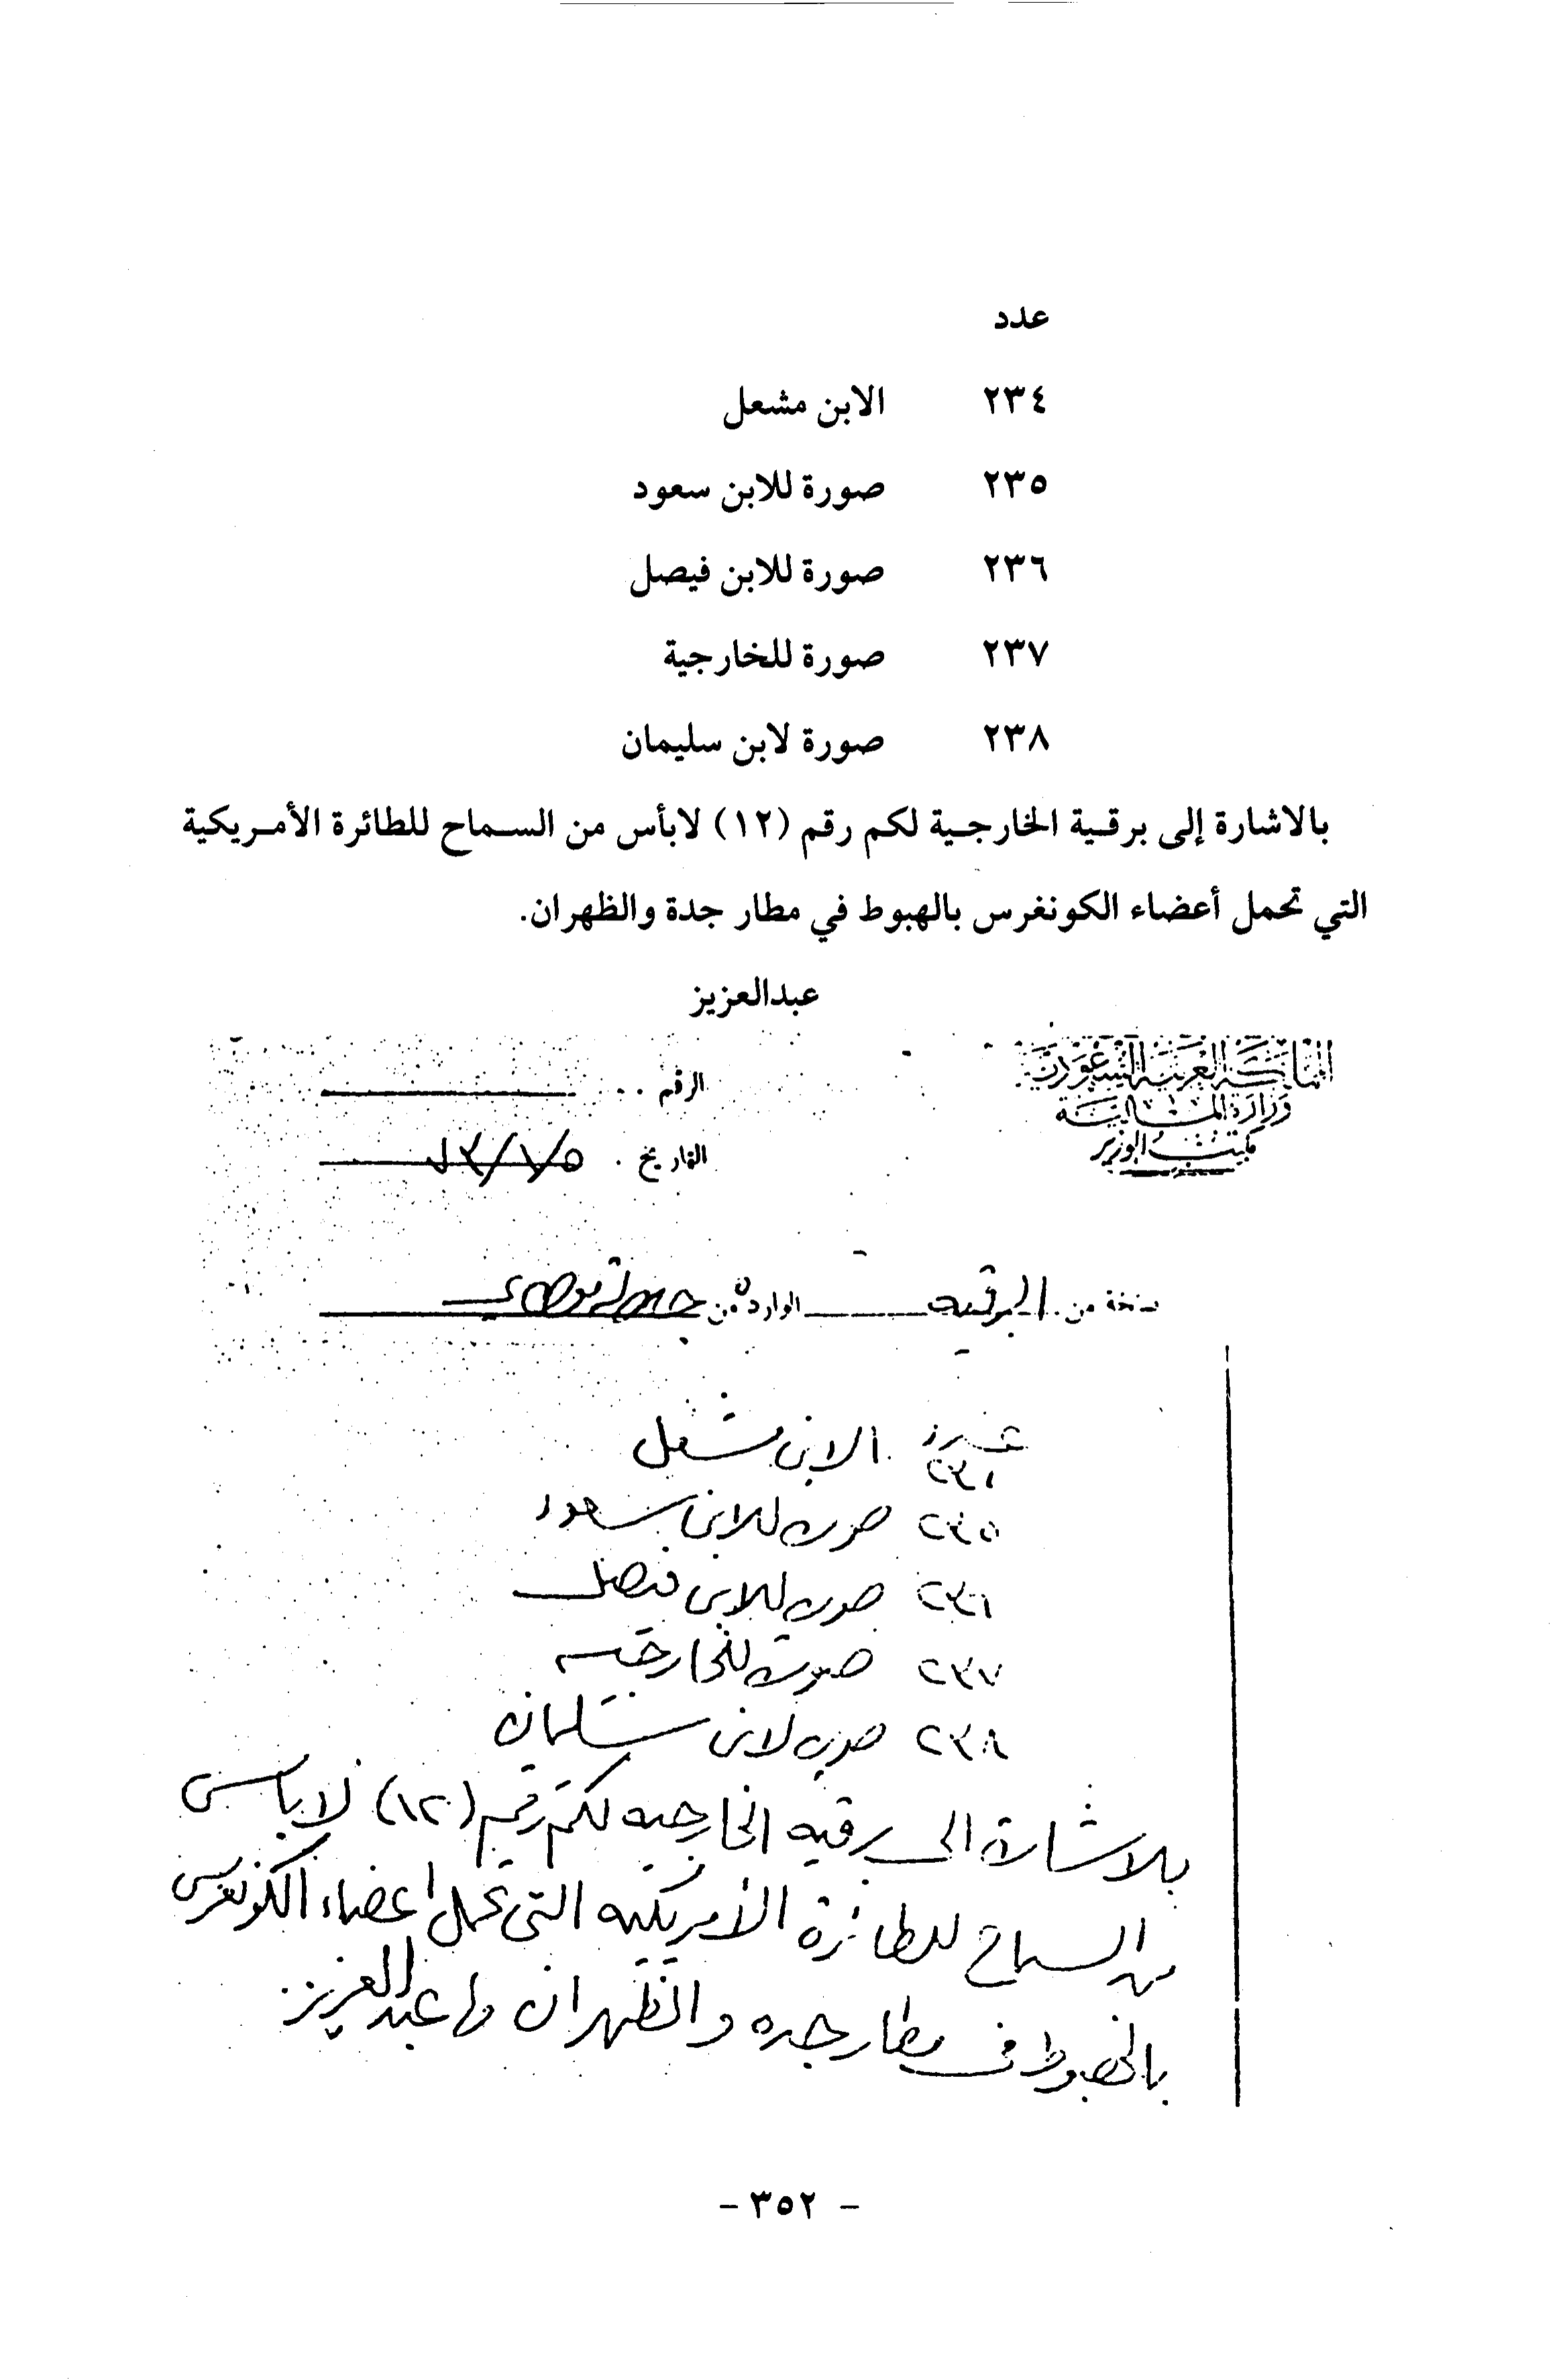 عدد
٢٣٤ الابن مشعل
٢٣٥ صورة للابن سعود
٢٣٦ صورة للابن فيصل
٢٣٧ صورة للخارجية
٢٣٨ صورة لابن سليمان
بالاشارة إلى برقية الخارجية لكم رقم (١٢) لابأس من السماح للطائرة الأمريكية
التي تحمل أعضاء الكونغرس بالهبوط في مطار جدة والظهران.
عبدالعزيز
المملكة العربية السعودية
وزارة المالية
مكتب الوزير
الرقم
التاريخ
نسخة من البرقيه الوارده من
الابن مشعل
٢٣٥ صوره للابن سعود
٢٣٦ صوره للابن فيصل
٢٣٧ صورة للخارجيه
٢٣٨ صوره لابن سليمان
بلاشارة الى برقيه الخارجيه لكم رقم (١٢) لاباس
من السماح للطائرة الأمريكيه التي تحمل اعضاء الكونغرس
بالهبوط في مطار جده والظهران عبدالعزيز
- ٣٥٢ -